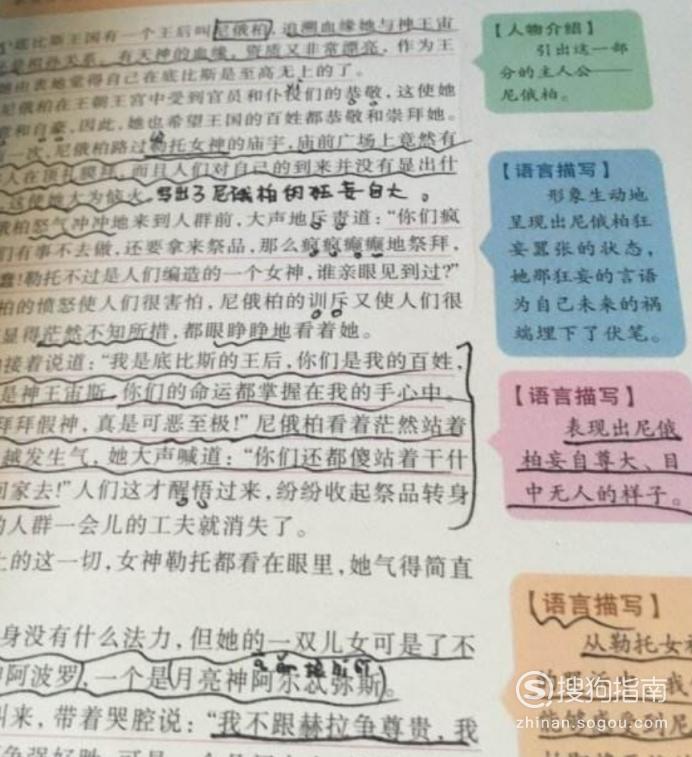 底比斯王国有一个王后叫尼俄柏，追溯血缘她与神王宙
是祖孙关系，有天神的血缘，资质又非常漂亮，作为王
她由衷地觉得自己在底比斯是至高无上的了。
尼俄柏在王朝王宫中受到官员和仆役们的恭敬，这使她
和自豪，因此，她也希望王国的百姓都恭敬和崇拜她。
一次，尼俄柏路过勒托女神的庙宇，庙前广场上竟然有
人在顶礼膜拜，而且人们对自己的到来并没有显出什
这使她大为恼火。写出了尼俄柏的狂妄自大。
俄柏怒气冲冲地来到人群前，大声地斥责道：“你们疯
们有事不去做，还要拿来祭品，那么疯疯癫癫地祭拜，
蠢！勒托不过是人们编造的一个女神，谁亲眼见到过？”
柏的愤怒使人们很害怕，尼俄柏的训斥又使人们很
显得茫然不知所措，都眼睁睁地看着她。
接着说道：“我是底比斯的王后，你们是我的百姓，
是神王宙斯，你们的命运都掌握在我的手心中。
拜拜假神，真是可恶至极！”尼俄柏看着茫然站着
越发生气，她大声喊道：“你们还都傻站着干什
回家去！”人们这才醒悟过来，纷纷收起祭品转身
的人群一会儿的工夫就消失了。
上的这一切，女神勒托都看在眼里，她气得简直
身没有什么法力，但她的一双儿女可是了不
阿波罗，一个是月亮神阿尔忒弥斯。
叫来，带着哭腔说：“我不跟赫拉争尊贵，我
【人物介绍】
引出这一部
分的主人公——
尼俄柏。
【语言描写】
形象生动地
呈现出尼俄柏狂
妄嚣张的状态，
她那狂妄的言语
为自己未来的祸
端埋下了伏笔。
【语言描写】
表现出尼俄
柏妄自尊大、目
中无人的样子。
【语言描写】
从勒托女
搜狗指南
zhinan.sogou.com